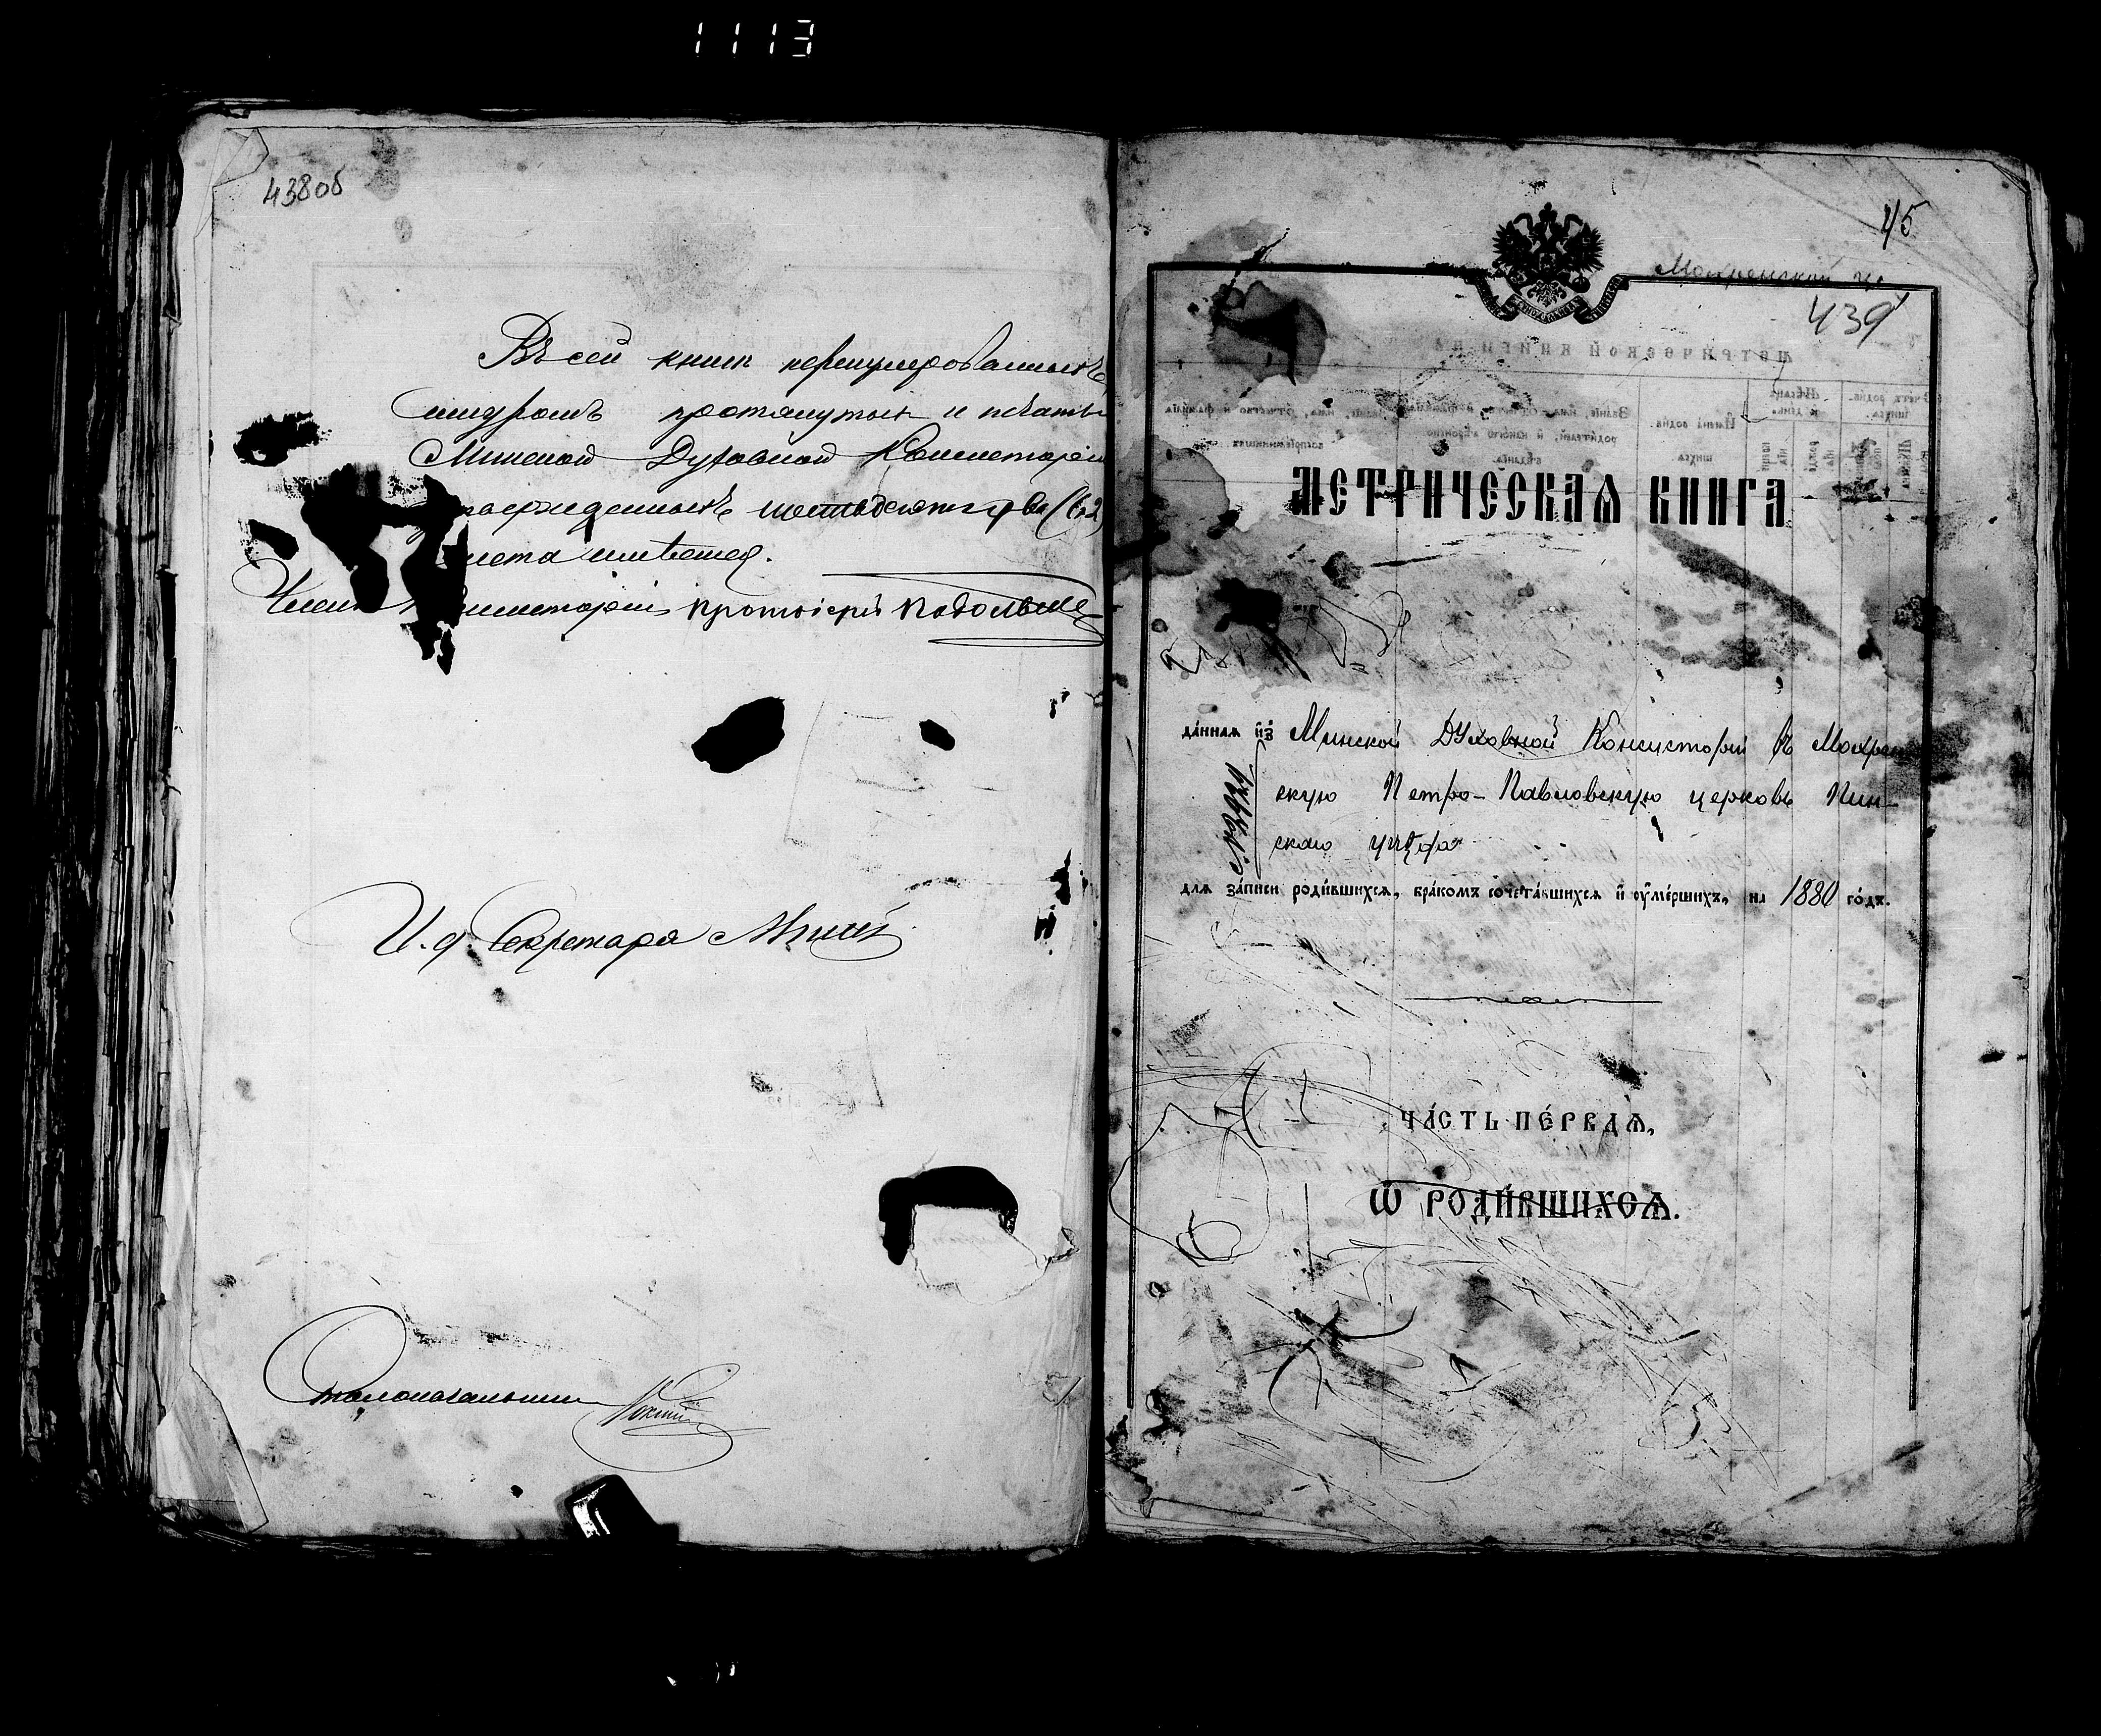 1113
438об
Въ сей книгѣ перенумерованныхъ
шнуромъ протянутыхъ и печатью
Минской Духовной Консисторіи
шестьдесятъ два (62)
листа имѣется.
Членъ Консисторіи Протоіерей
И. д. Секретаря
Столоначальникъ
45
Мохренской ц.
439
МЕТРИЧЕСКАѦ КНИГА
да́ннаѧ и҆зъ Минской Духовной Консисторіи въ Мохрен
скую Петро-Павловскую церковь Пин-
скаго уѣзда
№ 2929
длѧ за́писи роди́вшихсѧ, бра́комъ сочета́вшихсѧ и҆ ѹ҆ме́ршихъ, на 1880 го́дъ.
ЧА́СТЬ ПЕ́РВАѦ,
Ѡ҆ РОДИ́ВШИХСѦ.